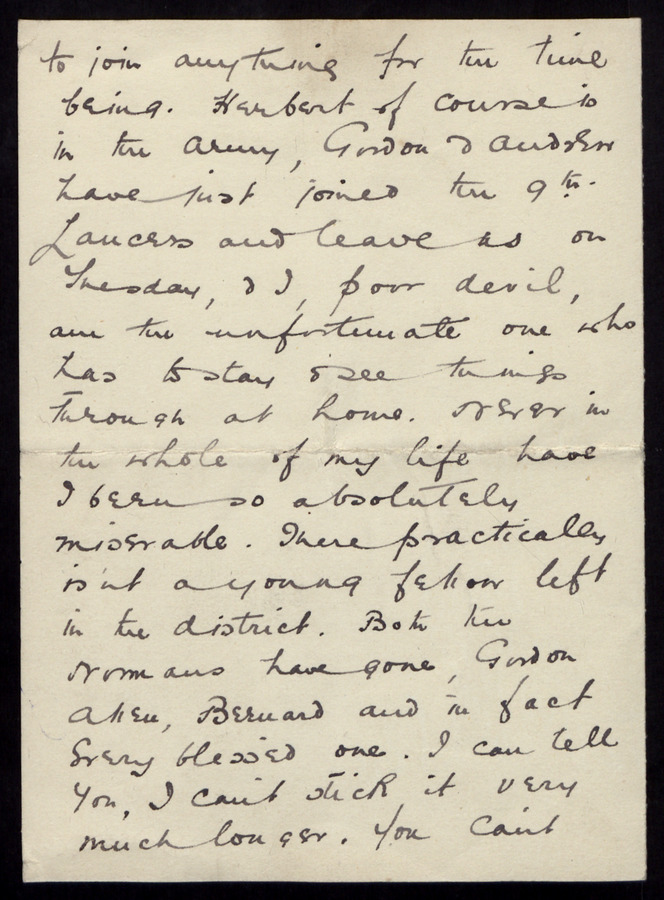 to join anything for the time
being. Herbert of course is
in the army, Gordon & Andrew
have just joined the 9th.
Lancers and leave us on
Tuesday, & I, poor devil,
am the unfortunate one who
has to stay & see things
through at home. Never in
the whole of my life have
I been so absolutely
miserable. There practically
isn't a young fellow left
in the district. Both the
Normans have gone, Gordon
Allen, Bernard and in fact
every blessed one. I can tell
you, I can't stick it very
much longer. You can't